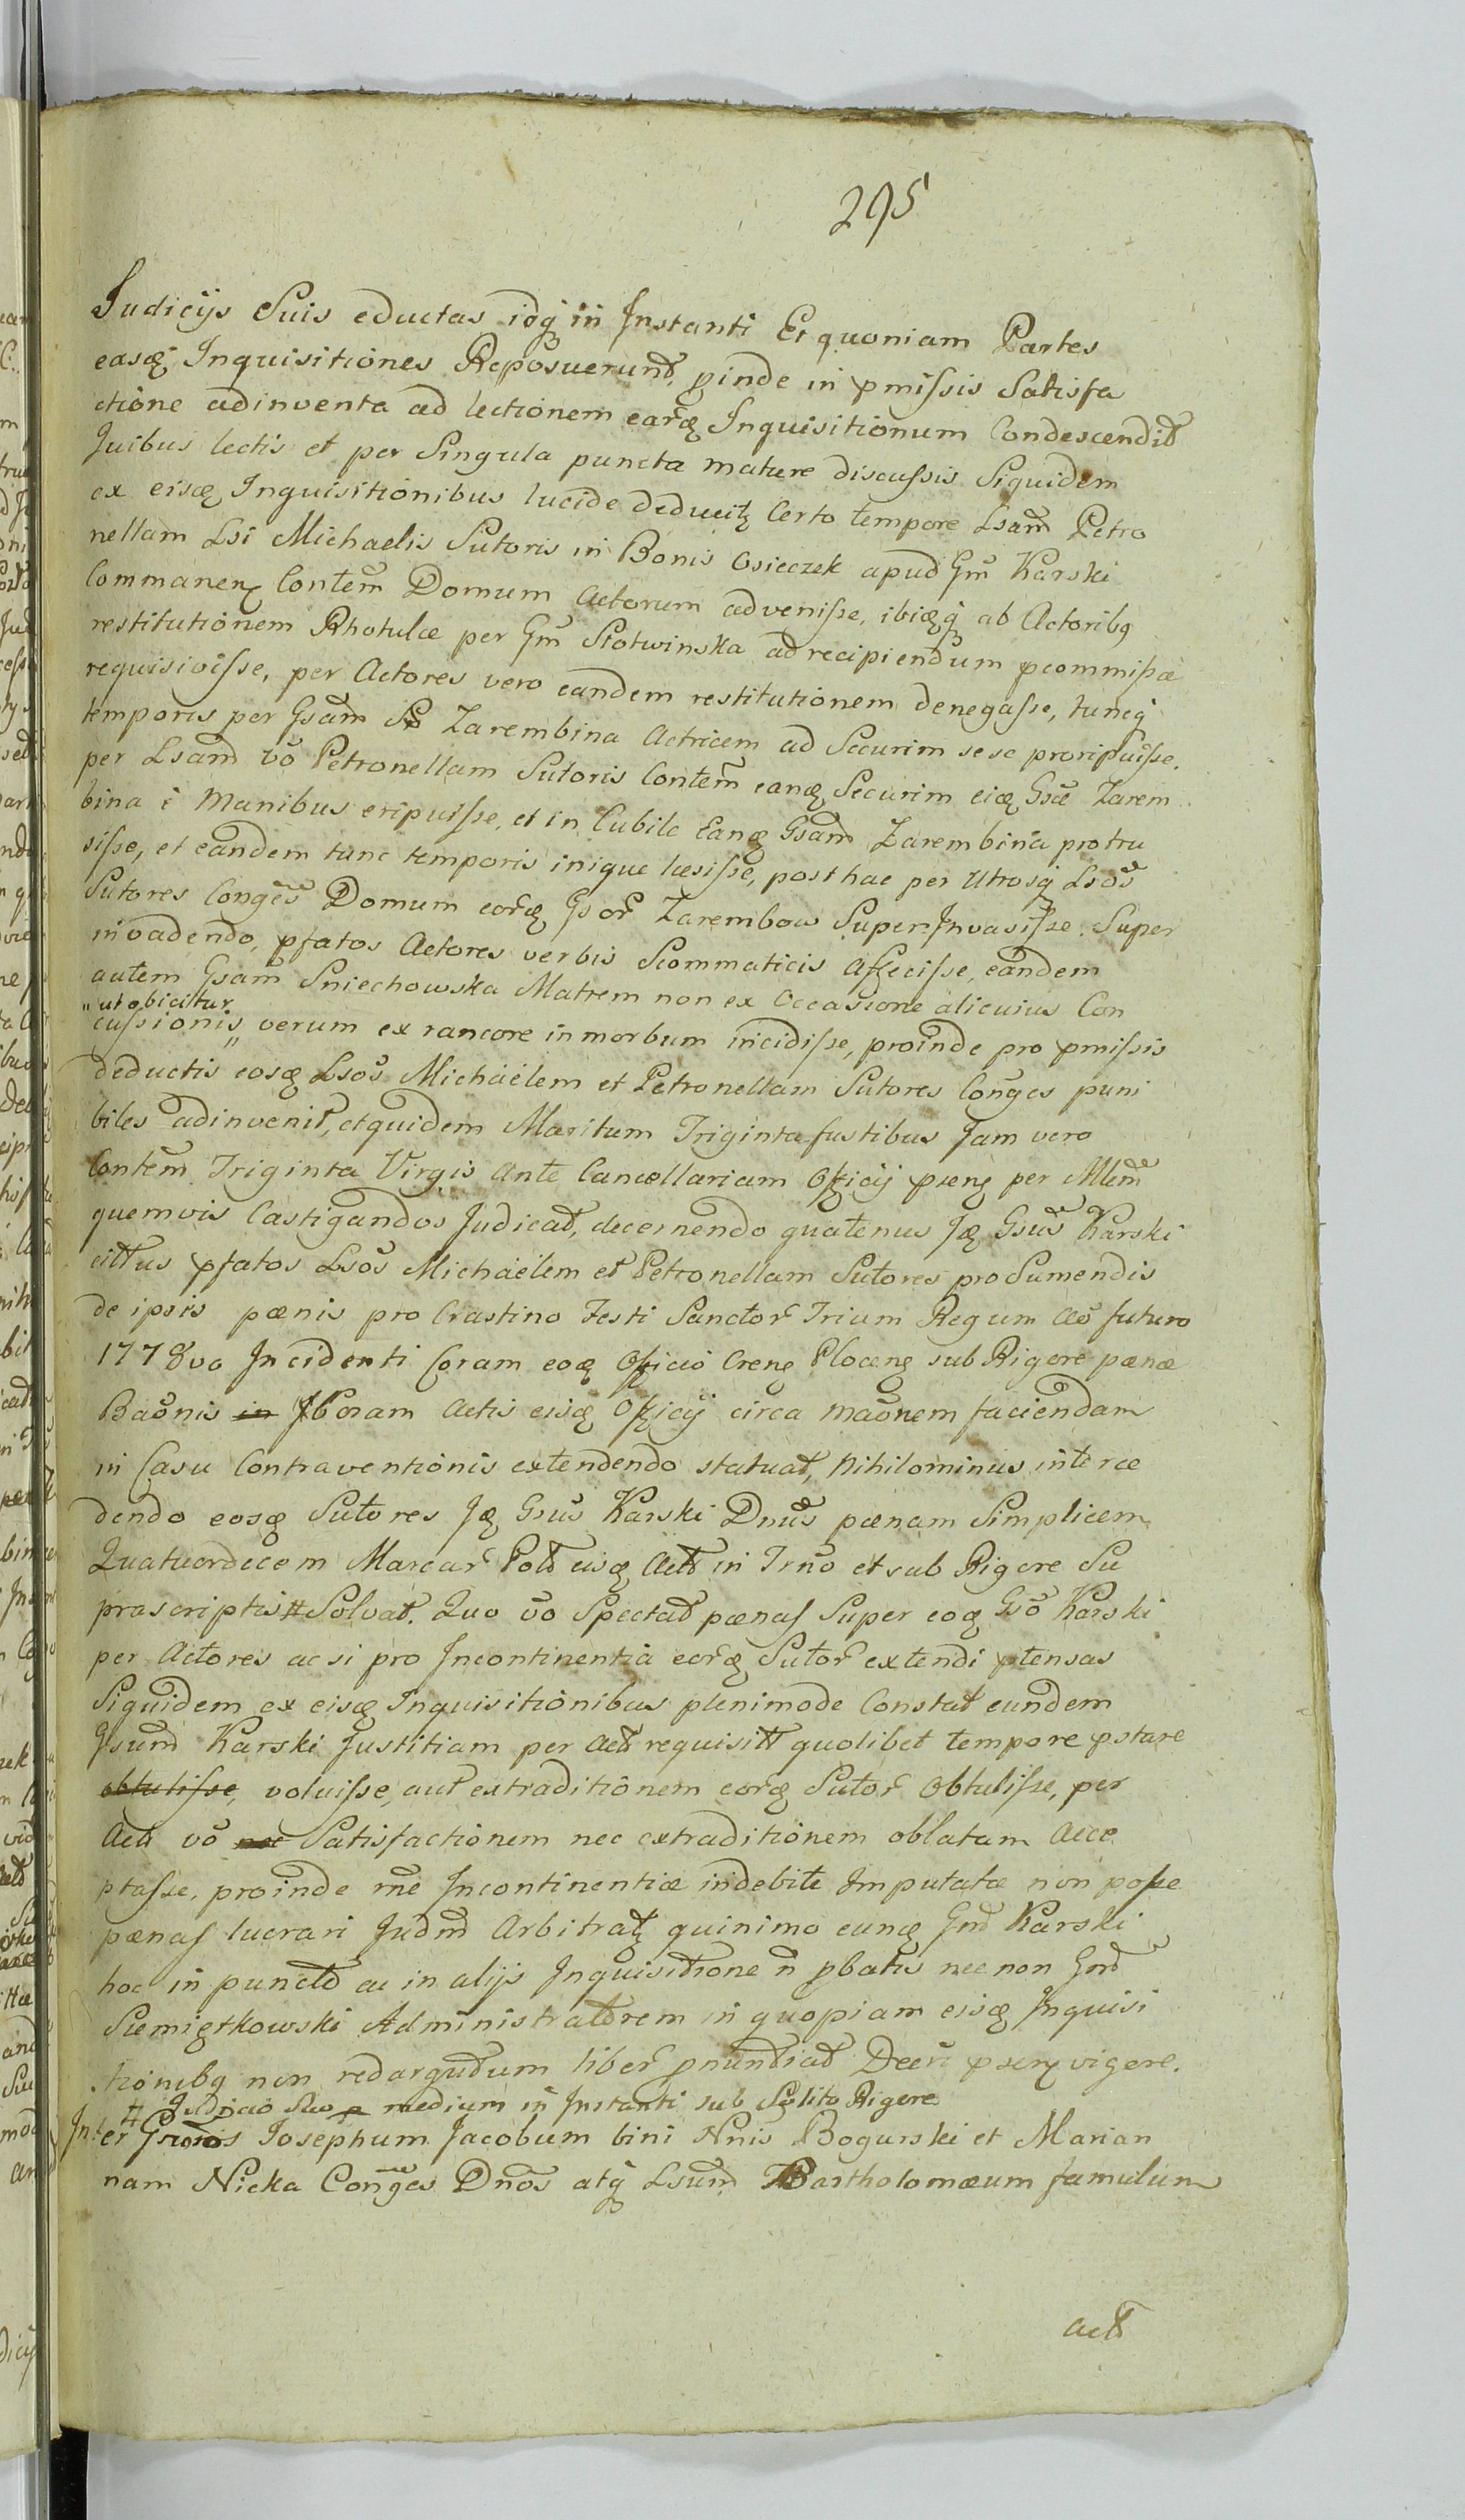 295
Judicijs Suis eductas idq in Instanti Et quoniam Partes
easq Inquisitiones Reposuerunt, pinde in pmissis Satisfa
ctione adinventa ad lectionem earq Inquisitionum Condescendit
Quibus lectis et per Singula puncta mature discussis Siquidem
ex eisq Inquisitionibus lucide deducitz Certo tempore Lsam Petro
nellam Lsi Michaelis Sutoris in Bonis Osieczek apud Gm Karski
Commanen Contem Domum Actorum advenisse, ibiqq ab Actoribq
restitutionem Rhotulæ per Gm Slotwinska ad recipiendum pcommissæ
requisivisse, per Actores vero eandem restitutionem denegasse, tuncq
temporis per Gsam Zarembina Actricem ad Securim sese proripuisse.
per Lsam vo Petronellam Sutoris Contem eanq Securim eiq Gsæ Zarem
bina è Manibus eripuisse, et in Cubile Eanq Gsam Zarembina protru
sisse, et eandem tunc temporis inique læsisse, post hac per Utrosq Lsos
Sutores Conges Domum eorq Gsor Zarembow SuperInvasisse. Super
invadendo, pfatos Actores verbis Scommaticis Affecisse, eandem
autem Gsam Sniechowska Matrem non ex Occasione alicuius Con
"ut obicitur
cussionis" verum ex rancore in morbum incidisse, proinde pro pmissis
deductis eosq Lsos Michaëlem et Petronellam Sutores Conges puni
biles adinvenit, et quidem Maritum Triginta fustibus Jam vero
Contem Triginta Virgis ante Cancellariam Officij psens per Mlem
quemvis Castigandos Judicat, decernendo quatenus Jq Gsus Karski
cittus pfatos Lsos Michaëlem et Petronellam Sutores pro Sumendis
de ipsis pænis pro Crastino Festi Sanctor Trium Regum Ao futuro
1778vo Incidenti Coram eoq Officio Crens Plocens sub Rigore pænæ
Baonis in Coram Actis eisq Officij circa maonem faciendam
in Casu Contraventionis extendendo statuat, Nihilominus interce
dendo eosq Sutores Jq Gsus Karski Dnus pænam Simplicem
Quatuordecem Marcar Pol eisq Act in Trno et sub Rigore Su
prascriptis # Solvat. Quo vo Spectat pænas Super eoq Gso Karski
per Actores ac si pro Incontinentia eorq Sutor extendi ptensas
Siquidem ex eisq Inquisitionibus plenimode Constat eundem
Gsum Karski Justitiam per Act requisitt quolibet tempore pstare
obtulisse, voluisse, aut extraditionem eorq Sutor Obtulisse, per
Act vo nec Satisfactionem nec extraditionem oblatam Acce
ptasse, proinde rne Incontinentiæ indebite Imputatæ non posse
pænas lucrari Judm Arbitratz quinimo eunq Gm Karski
hoc in puncto ac in alijs Inquisitione n pbatis nec non Gm
Siemiętkowski Administratorem in quopiam eisq Inquisi
tionibq non redargutum liber pnuntiat Decri psens vigore.
# Judicio Suo p medium in Instanti sub Solito Rigore
Inter Grosos Josephum Jacobum bini Nnis Bogurski et Marian
nam Nicka Conges Dnos atq Lsum Bartholomæum famulum
Act